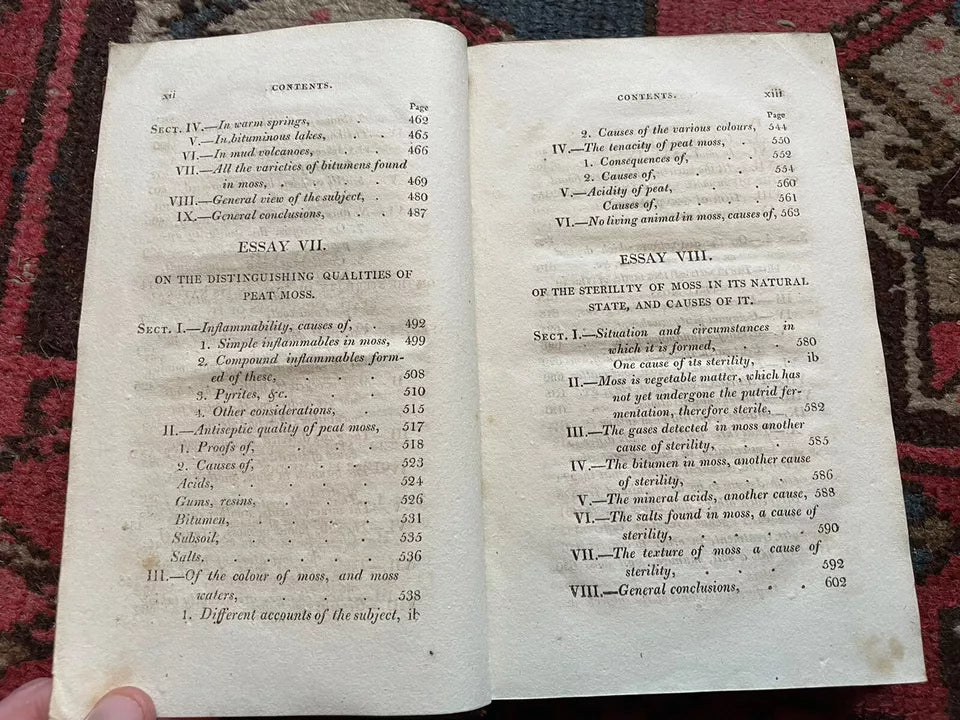 xii
CONTENTS.
Page
SECT. IV.—In warm springs, . 462
V.—In bituminous lakes, . . 465
VI.—In mud volcanoes, . . 466
VII.—All the varieties of bitumens found
in moss, . . . . 469
VIII.—General view of the subject, . 480
IX.—General conclusions, . . 487
ESSAY VII.
ON THE DISTINGUISHING QUALITIES OF
PEAT MOSS.
SECT. I.—Inflammability, causes of, . 492
1. Simple inflammables in moss, 499
2. Compound inflammables form-
ed of these, . . . 508
3. Pyrites, &c. . . . 510
4. Other considerations, . 515
II.—Antiseptic quality of peat moss, 517
1. Proofs of, . . . 518
2. Causes of, . . . 523
Acids, . . . . 524
Gums, resins, . . . 526
Bitumen, . . . . 531
Subsoil, . . . . 535
Salts. . . . . 536
III.—Of the colour of moss, and moss
waters, . . . . 538
1. Different accounts of the subject, ib
CONTENTS.
xiii
Page
2. Causes of the various colours, 544
IV.—The tenacity of peat moss, . 550
1. Consequences of, . . 552
2. Causes of, . . . 554
V.—Acidity of peat, . . 560
Causes of, . . . 561
VI.—No living animal in moss, causes of, 563
ESSAY VIII.
OF THE STERILITY OF MOSS IN ITS NATURAL
STATE, AND CAUSES OF IT.
SECT. I.—Situation and circumstances in
which it is formed, . . 580
One cause of its sterility, . ib
II.—Moss is vegetable matter, which has
not yet undergone the putrid fer-
mentation, therefore sterile, 582
III.—The gases detected in moss another
cause of sterility, . . 585
IV.—The bitumen in moss, another cause
of sterility, . . . 586
V.—The mineral acids, another cause, 588
VI.—The salts found in moss, a cause of
sterility, . . . . 590
VII.—The texture of moss a cause of
sterility, . . . 592
VIII.—General conclusions, . . 602